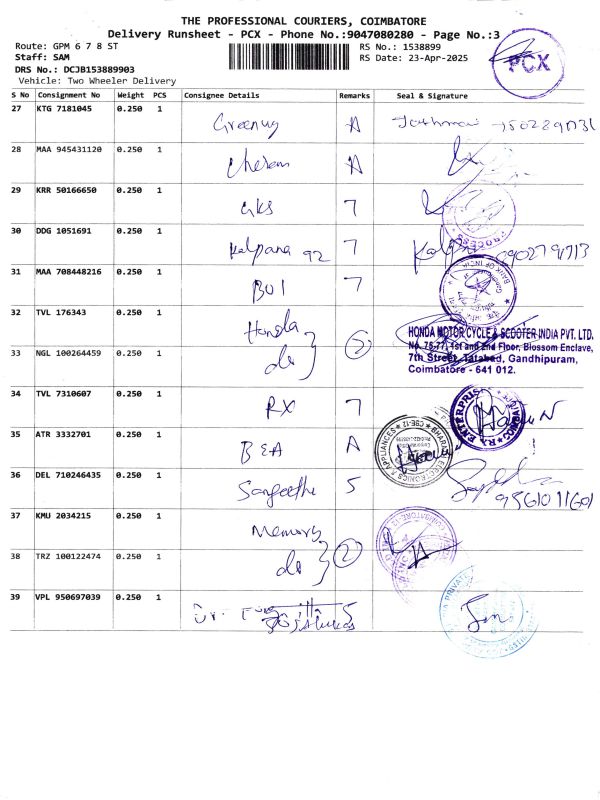 THE PROFESSIONAL COURIERS, COIMBATORE
Delivery Runsheet - PCX - Phone No.:9047080280 - Page No.:3
Route: GPM 6 7 8 ST
RS No.: 1538899
Staff: SAM
RS Date: 23-Apr-2025
DRS No.: DCJB153889903
Vehicle: Two Wheeler Delivery
PCX
S No Consignment No Weight PCS Consignee Details Remarks Seal & Signature
27 KTG 7181045 0.250 1 A
28 MAA 945431120 0.250 1 A
29 KRR 50166650 0.250 1 GKS 7
PROCESS
30 DDG 1051691 0.250 1 Kalpana 92 7
31 MAA 708448216 0.250 1 BOI 7
BANK OF INDIA
32 TVL 176343 0.250 1 Honda
33 NGL 100264459 0.250 1 do 2
HONDA MOTOR CYCLE & SCOOTER INDIA PVT. LTD.
No. 76-77, 1st and 2nd Floor, Blossom Enclave,
7th Street, Tatabad, Gandhipuram,
Coimbatore - 641 012.
34 TVL 7310607 0.250 1 RX 7
RX ENTERPRISE
35 ATR 3332701 0.250 1 BEA A
BHARAT ELECTRONICS & APPLIANCES
36 DEL 710246435 0.250 1 Sangeetha 5
37 KMU 2034215 0.250 1 Memory
38 TRZ 100122474 0.250 1 do 2
39 VPL 950697039 0.250 1 Dr. 5